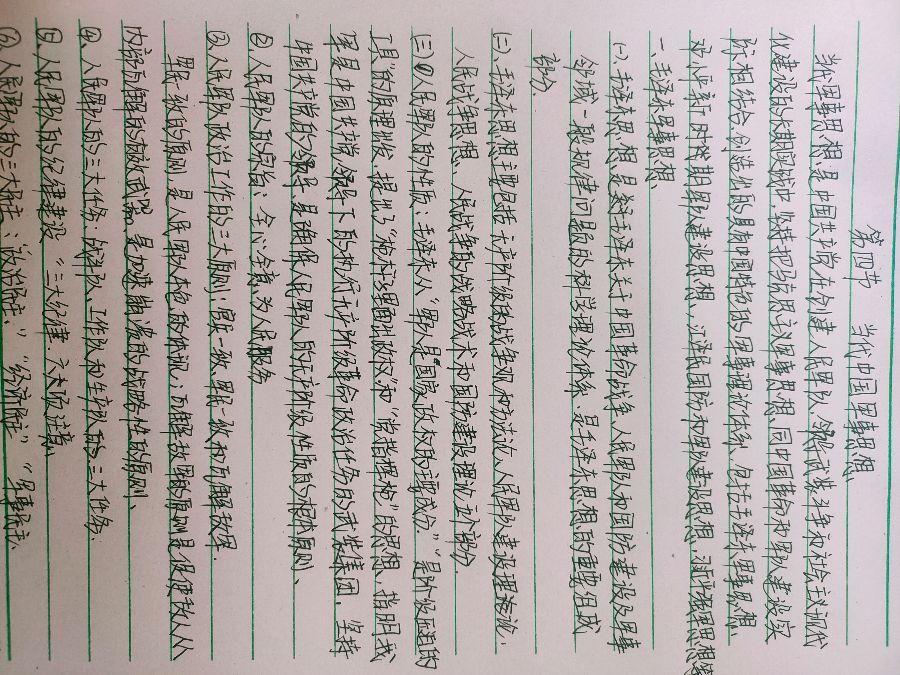 第四节 当代中国军事思想
当代军事思想是中国共产党在创建人民军队、领导武装斗争和社会主义现代
化建设的长期实践中,坚持把马克思主义军事思想同中国革命和军队建设实
际相结合,创造出的具有中国特色的军事理论体系,包括毛泽东军事思想、
邓小平新时期军队建设思想,江泽民国防和军队建设思想,习近平强军思想等
一、毛泽东军事思想
(一)、毛泽东思想是关于毛泽东关于中国革命战争、人民军队和国防建设及军事
领域一般规律问题的科学理论体系,是毛泽东思想的重要组成
部分
(二)、毛泽东思想主要包括:无产阶级的战争观和方法论、人民军队建设理论、
人民战争思想、人民战争的战略战术和国防建设理论五个部分.
(三)①人民军队的性质:毛泽东从“军队是国家政权的主要成份.”是阶级压迫的
工具”的原理出发,提出了“枪杆子里面出政权”和“党指挥枪”的思想,指明我
军是中国共产党领导下的执行无产阶级革命政治任务的武装集团,坚持
中国共产党的领导是确保人民军队的无产阶级性质的根本原则、
② 人民军队的宗旨:全心全意为人民服务
③ 人民军队政治工作的三大原则:官兵一致、军民一致和瓦解敌军.
军民一致的原则是人民军队本色的体现,瓦解敌军的原则是促使敌人从
内部瓦解的有效武器,是加速崩溃的战略性的原则、
④、人民军队的三大任务:战斗队、工作队和生产队的三大任务.
⑤、人民军队的纪律建设 “三大纪律 六大项注意.
⑥、人民军队的三大民主:“政治民主.”“经济民主”“军事民主.